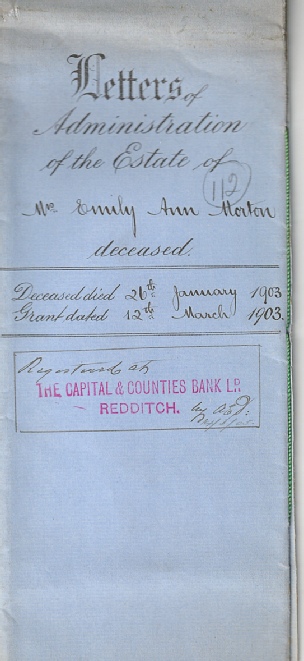 Letters of
Administration
of the Estate of
112
Mrs Emily Ann Morton
deceased.
Deceased died 26th January 1903
Grant dated 12th March 1903.
Registered at
THE CAPITAL & COUNTIES BANK LD.
REDDITCH.